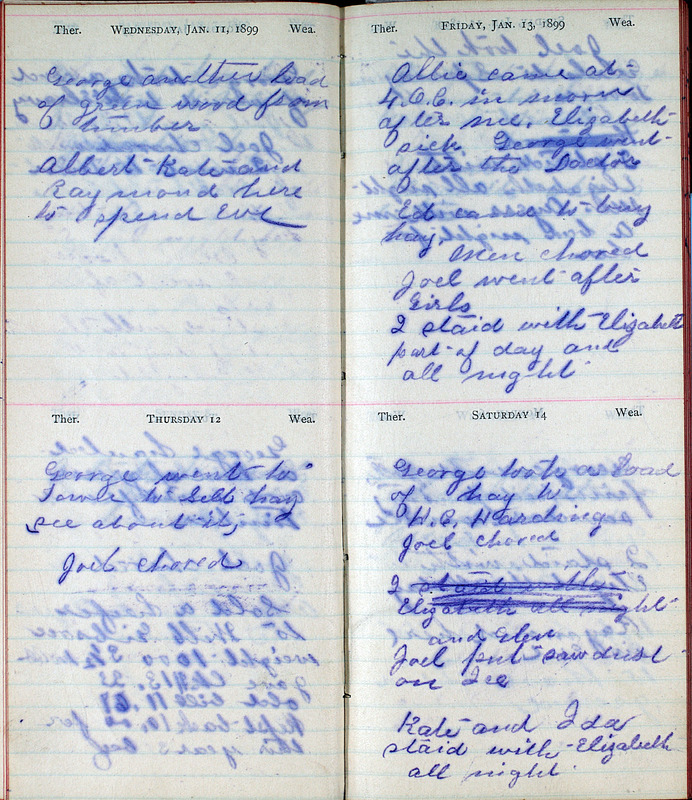 Ther. WEDNESDAY, JAN. 11, 1899 Wea.
George another load
of green wood from
timber
Albert Kate and
Raymond here
to spend Eve
Ther. THURSDAY 12 Wea.
George went to
town to sell hay
see about it,
Joel chored
Ther. FRIDAY, JAN. 13, 1899 Wea.
Allie came at
4.O.C. in morn
after me. Elizabeth
sick George went
after the Doctor
Ed came to buy
hay
Men chored
Joel went after
Girls
I staid with Elizabeth
part of day and
all night
Ther. SATURDAY 14 Wea.
George took a load
of hay to
H.C. Harding
Joel chored
I staid with
Elizabeth all night
and Elen
Joel put sawdust
on Ice
Kate and Ida
staid with Elizabeth
all night